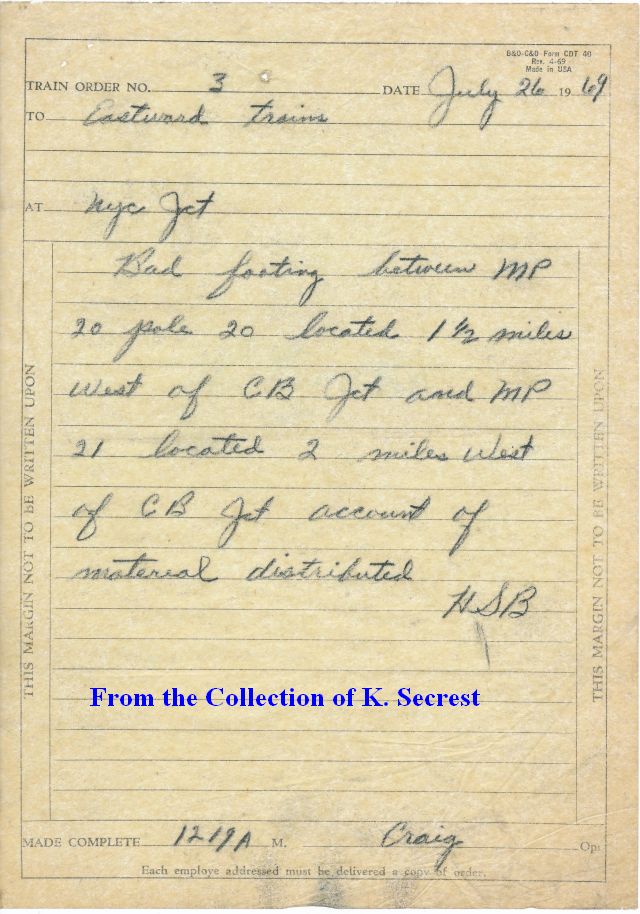 B&O-C&O Form CDT 40
Rev. 4-69
Made in USA
TRAIN ORDER NO. 3 DATE July 26 1969
TO Eastward trains
AT Nyc Jct
Bad footing between MP
20 pole 20 located 1 1/2 miles
West of CB Jct and MP
21 located 2 miles West
of CB Jct account of
material distributed
HSB
THIS MARGIN NOT TO BE WRITTEN UPON
THIS MARGIN NOT TO BE WRITTEN UPON
From the Collection of K. Secrest
MADE COMPLETE 1219A M. Craig Opr
Each employe addressed must be delivered a copy of order.